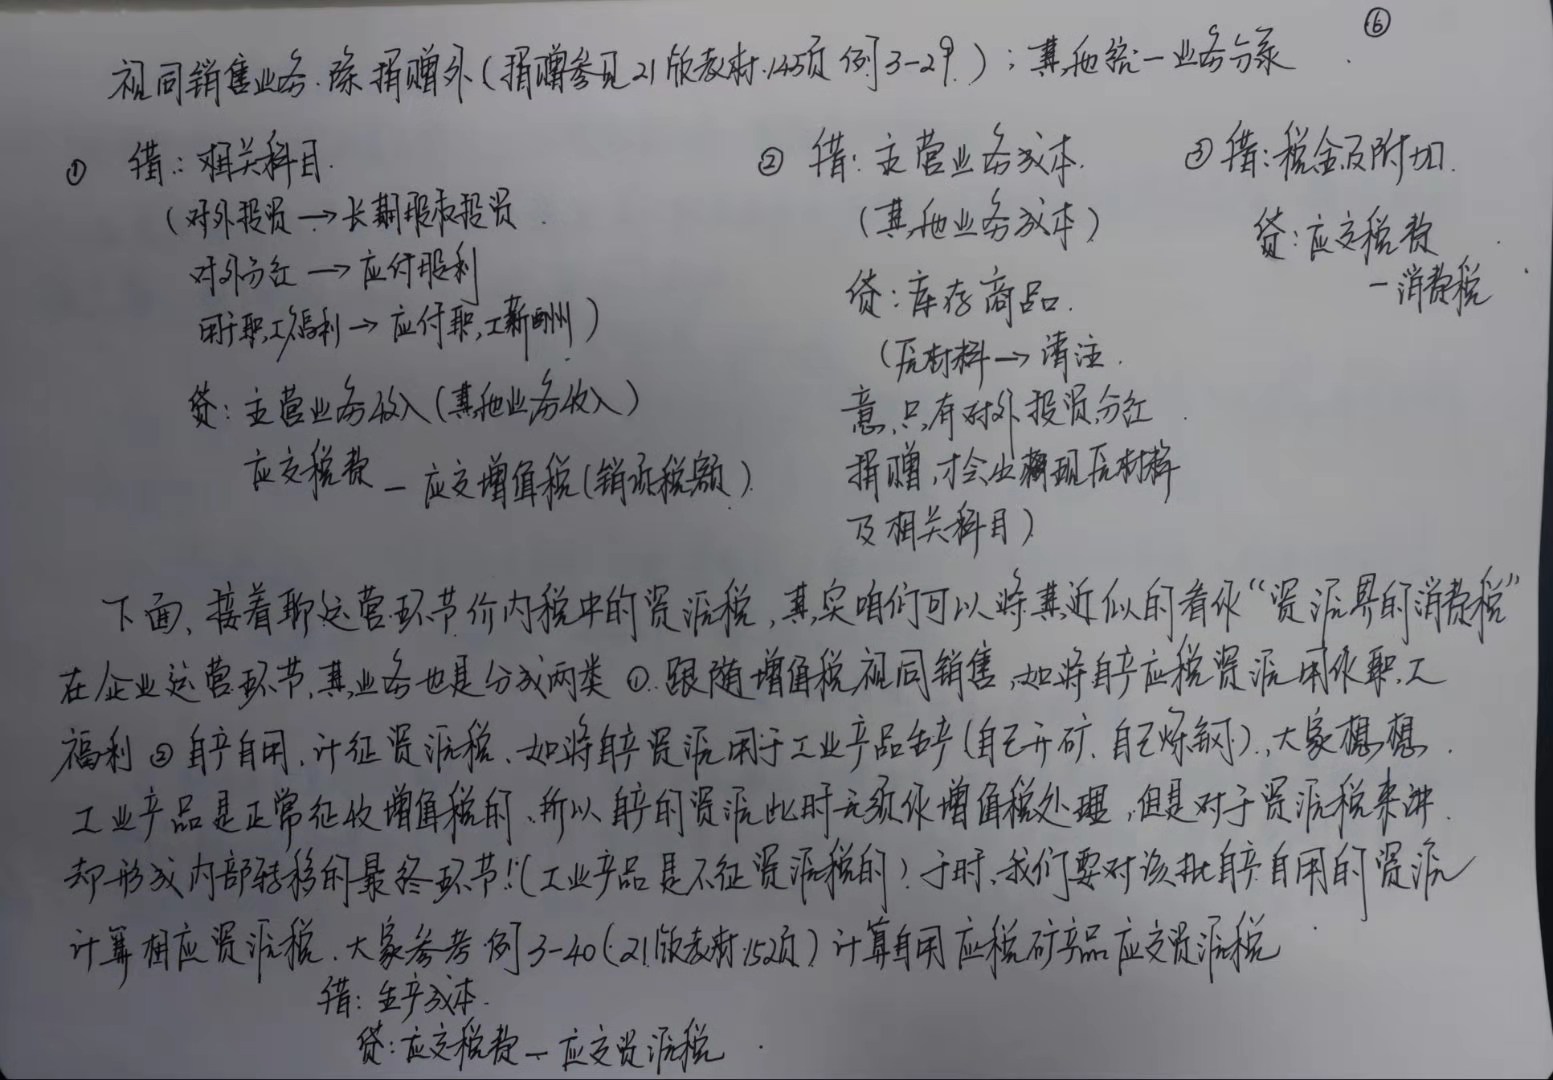 ⑥
视同销售业务.除捐赠外(捐赠参见21版教材.145页 例3-29.)；其他统一业务分录
① 借:相关科目.
(对外投资→长期股权投资.
对外分红→应付股利
用于职工福利→应付职工薪酬)
贷:主营业务收入(其他业务收入)
应交税费—应交增值税(销项税额).
② 借:主营业务成本.
(其他业务成本)
贷:库存商品.
(原材料→请注.
意,只有对外投资,分红.
捐赠,才会出现原材料
及相关科目)
③ 借:税金及附加.
贷:应交税费
—消费税
下面,接着聊运营环节价内税中的资源税,其实咱们可以将其近似的看作“资源界的消费税”
在企业运营环节,其业务也是分成两类 ①.跟随增值税视同销售,如将自产应税资源用作职工
福利 ②自产自用,计征资源税、如将自产资源用于工业产品生产(自己开矿、自己炼钢).,大家想想.
工业产品是正常征收增值税的、所以自产的资源此时无须作增值税处理,但是对于资源税来讲.
却形成内部转移的最终环节!(工业产品是不征资源税的)于时、我们要对该批自产自用的资源
计算相应资源税.大家参考例3-40(21版教材152页)计算自用应税矿产品应交资源税
借:生产成本.
贷:应交税费—应交资源税.